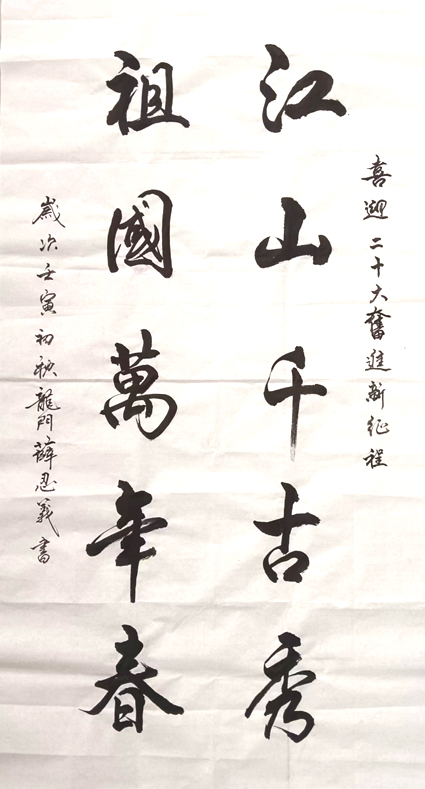 喜迎二十大奮進新征程
江山千古秀
祖國萬年春
歲次壬寅初秋龍門薛忍義書